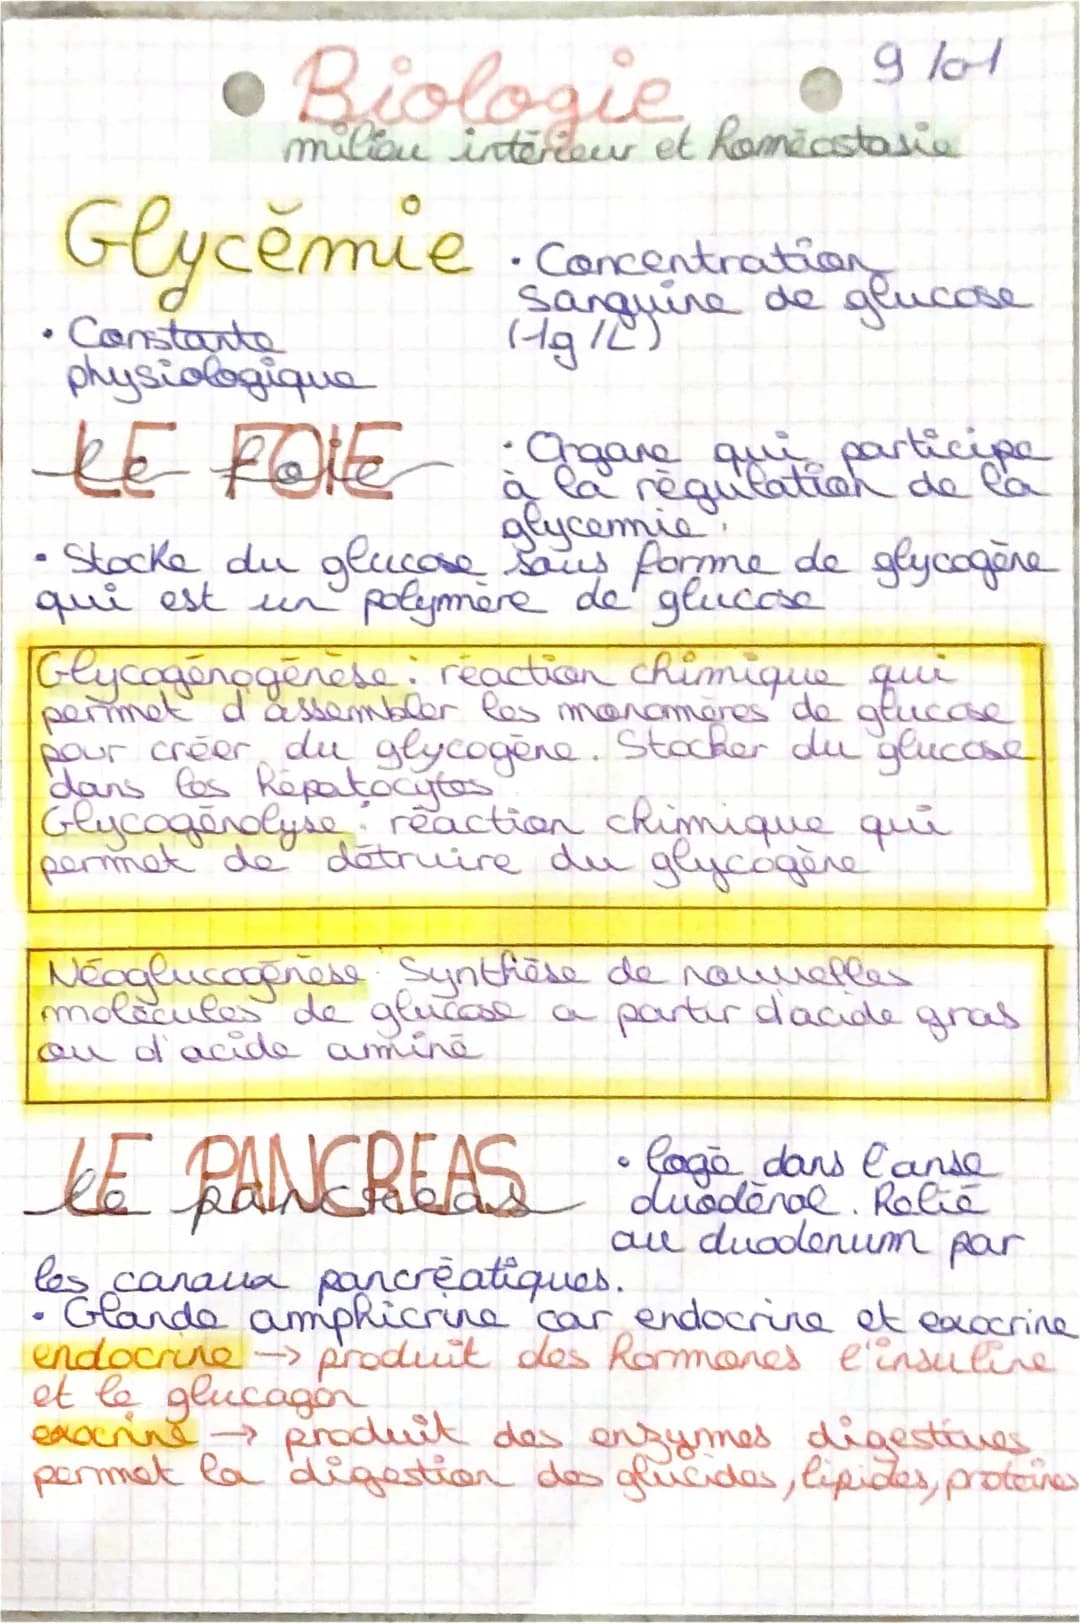 9/01
Biologie
milieu intérieur et homéostasie
Glycémie
• Concentration
sanguine de glucose
(1g/L)
• Constante
physiologique
LE FOIE
le foie
• Organe qui participe
à la régulation de la
glycemie.
• Stocke du glucose sous forme de glycogène
qui est un polymère de glucose
Glycogénogénèse : réaction chimique qui
permet d'assembler les monomères de glucose
pour créer du glycogène. Stocker du glucose
dans les hépatocytes
Glycogénolyse : réaction chimique qui
permet de détruire du glycogène
Néoglucogénèse : Synthèse de nouvelles
molécules de glucose a partir d'acide gras
ou d'acide aminé
LE PANCREAS
le pancréas
• logé dans l'anse
duodénal. Relié
au duodenum par
les canaux pancréatiques.
• Glande amphicrine car endocrine et exocrine
endocrine → produit des hormones l'insuline
et le glucagon
exocrine → produit des enzymes digestives
permet la digestion des glucides, lipides, protéines